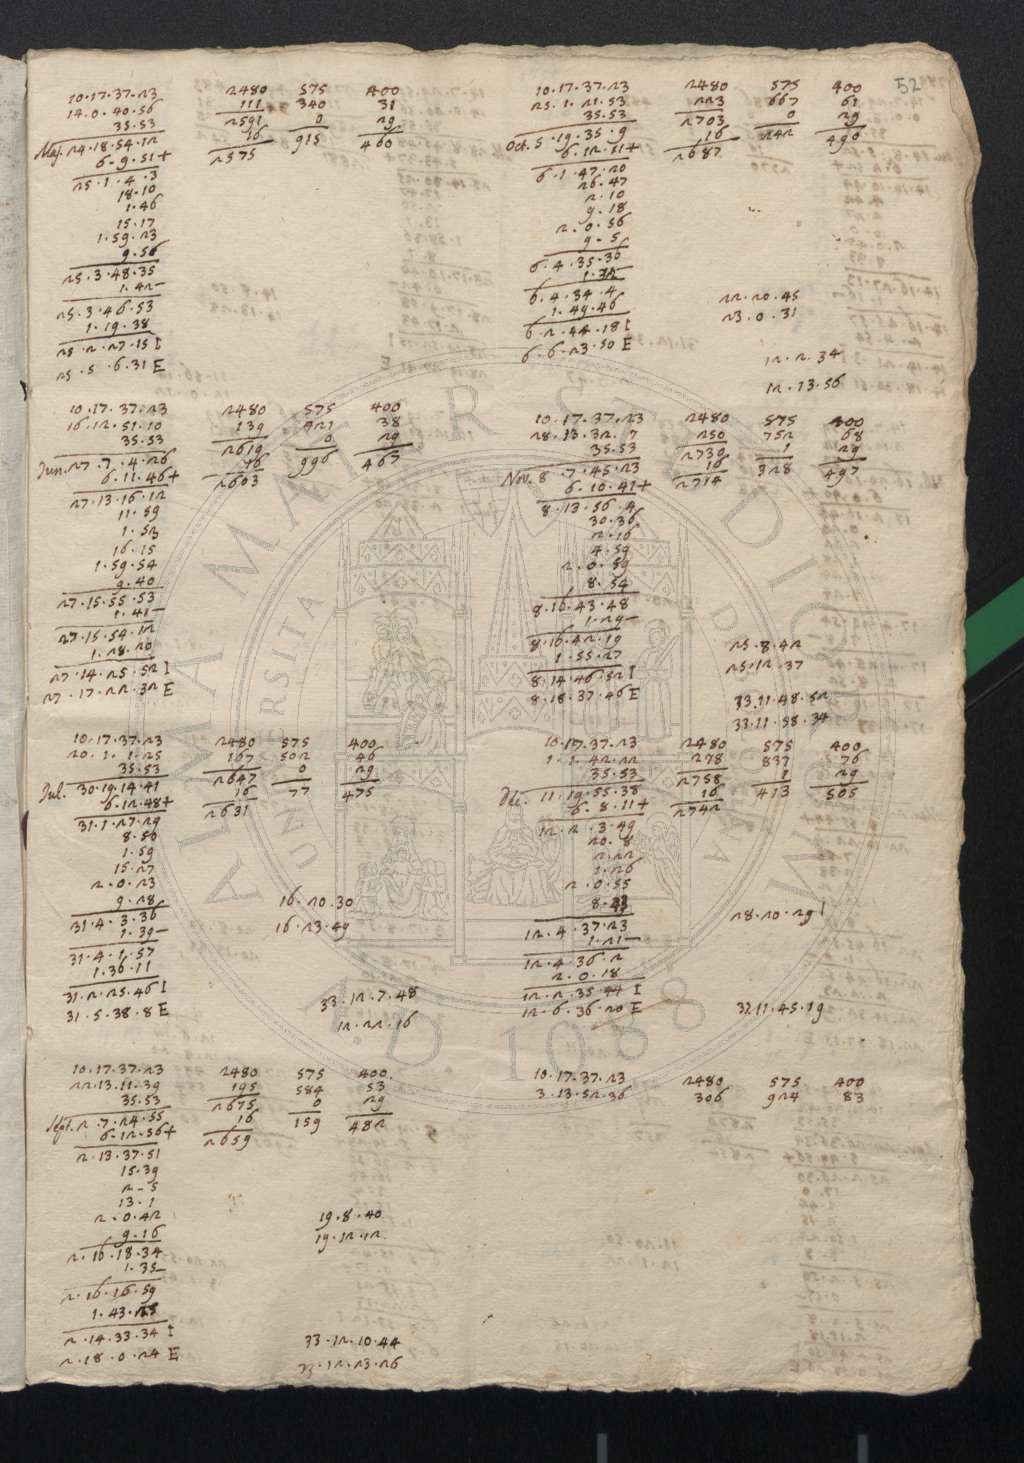 52
10.17.37.23 2480 575 400
14.0.40.56 111 340 31
35.53 2591 0 29
Maj. 24.18.54.12 16 915 460
6.9.51+ 2575
25.1.4.3
18.10
1.46
15.17
1.59.23
9.56
25.3.48.35
1.42-
25.3.46.53
1.19.38
25.2.27.15 I
25.5.6.31 E
10.17.37.23 2480 575 400
16.12.51.10 139 421 38
35.53 2619 0 29
Jun. 27.7.4.26 16 996 467
6.11.46+ 2603
27.13.16.12
11.59
1.53
16.15
1.59.54
9.40
27.15.55.53
1.41-
27.15.54.12
1.28.20
27.14.25.52 I
27.17.22.32 E
10.17.37.23 2480 575 400
20.1.1.25 167 502 46
35.53 2647 0 29
Jul. 30.19.14.41 16 77 475
6.12.48+ 2631
31.1.27.29
8.50
1.59
15.27
2.0.23
9.28 16.20.30
31.4.3.36 16.23.49
1.39-
31.4.1.57
1.36.11
31.2.25.46 I 33.12.7.48
31.5.38.8 E 12.22.16
10.17.37.23 2480 575 400
22.13.11.39 195 584 53
35.53 2675 0 29
Sept. 2.7.24.55 16 159 482
6.12.56+ 2659
2.13.37.51
15.39
2.5
13.1
2.0.42 19.8.40
9.16 19.12.12
2.16.18.34
1.35-
2.16.16.59
1.43.25
2.14.33.34 I 33.12.10.44
2.18.0.24 E 33.12.23.26
10.17.37.23 2480 575 400
25.1.21.53 223 667 61
35.53 2703 0 29
Oct. 5.19.35.9 16 242 490
6.12.11+ 2687
6.1.47.20
26.47
2.10
9.18
2.0.56
9.5
6.4.35.36
1.32
6.4.34.4 22.20.45
1.49.46 23.0.31
6.2.44.18 I
6.6.23.50 E 12.2.34
12.13.56
10.17.37.23 2480 575 400
28.13.32.7 250 752 68
35.53 2730 1 29
Nov. 8.7.45.23 16 328 497
6.10.41+ 2714
8.13.56.4
30.36
2.16
4.59
2.0.59
8.54
8.16.43.48
1.29-
8.16.42.19 25.8.42
1.55.27 25.12.37
8.14.46.52 I
8.18.37.46 E 33.11.48.52
33.11.58.34
10.17.37.23 2480 575 400
1.1.42.22 278 837 76
35.53 2758 1 29
Dec. 11.19.55.38 16 413 505
6.8.11+ 2742
12.2.3.49
20.8
2.22
1.26
2.0.55
8.43
12.4.37.23 28.20.29 I
1.21-
12.4.36.2
2.0.18
12.2.35.44 I
12.6.36.20 E 3211.45.19
10.17.37.23 2480 575 400
3.13.52.36 306 924 83
ALMA MATER STUDIORUM
UNIVERSITÀ
A.D. 1088